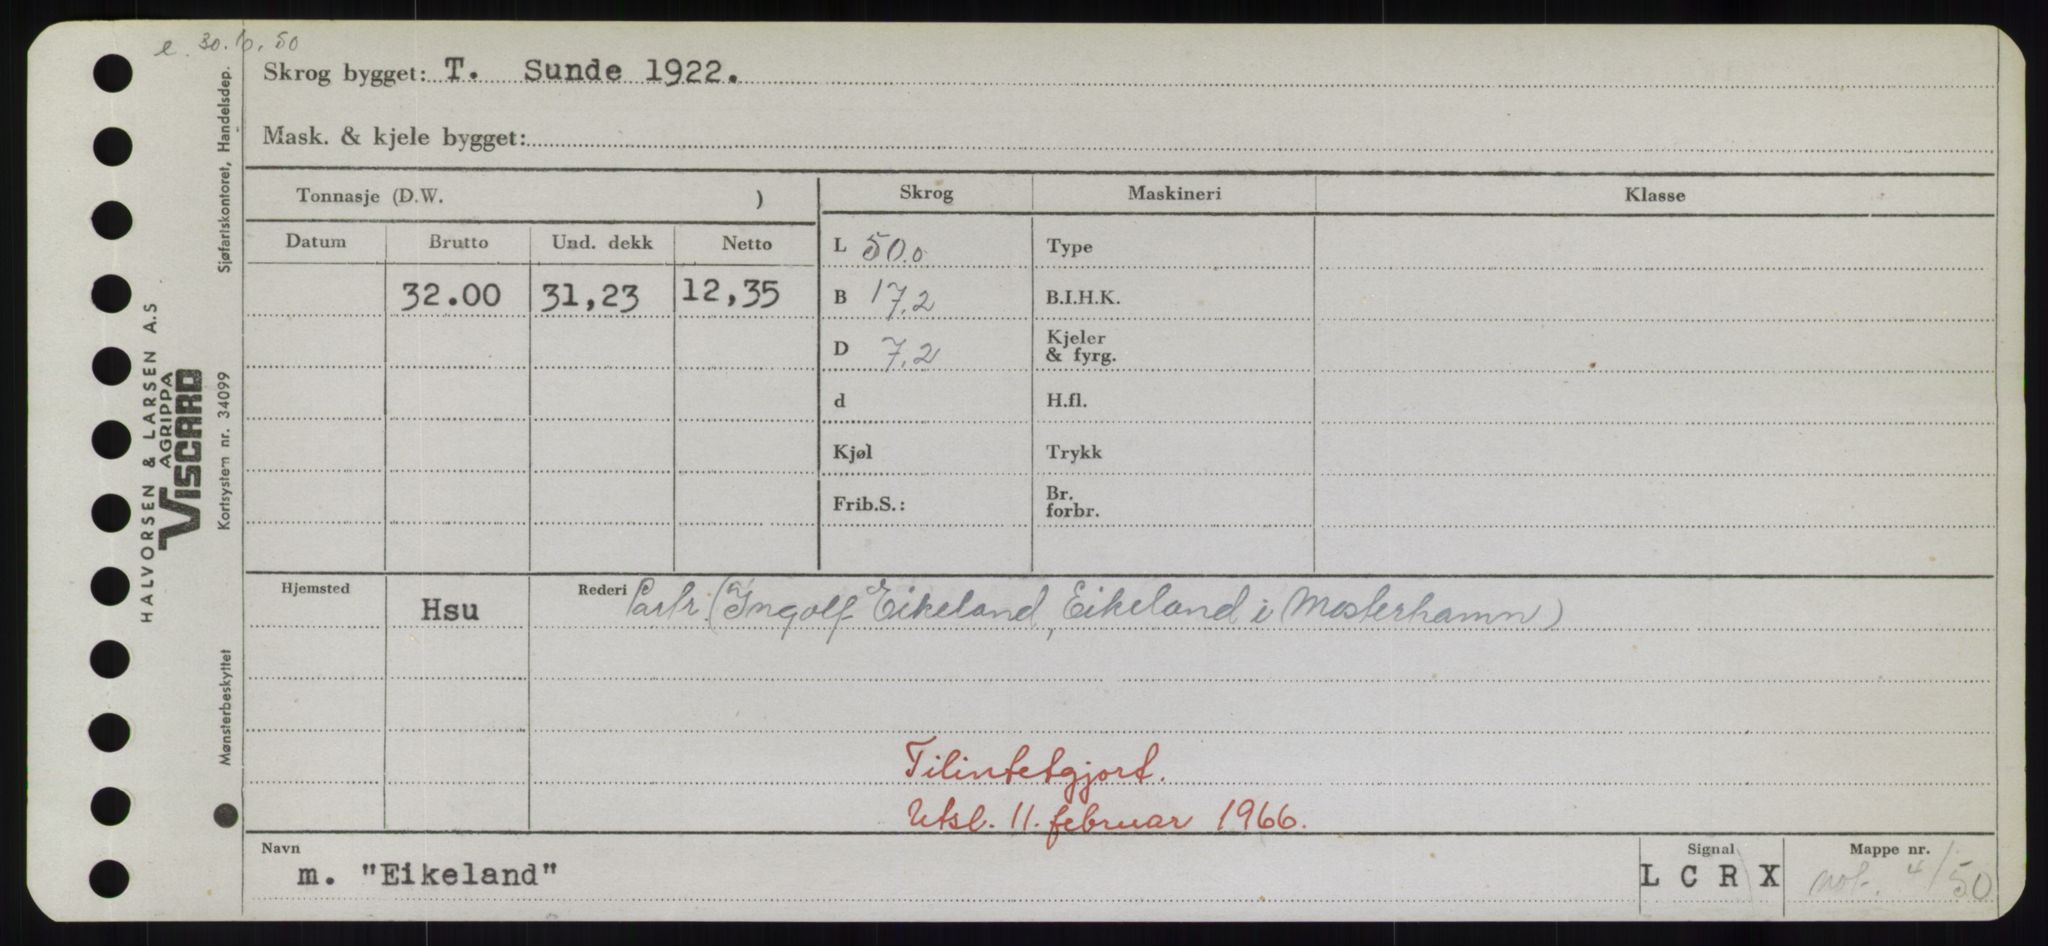 e. 30.6.50
Skrog bygget: T. Sunde 1922.
Mask. & kjele bygget:
Tonnasje (D.W. )
Skrog Maskineri Klasse
Datum Brutto Und. dekk Netto
32.00 31,23 12,35
L 50.0 Type
B 17,2 B.I.H.K.
D 7,2 Kjeler & fyrg.
d H.fl.
Kjøl Trykk
Frib.S.: Br. forbr.
Hjemsted Hsu Rederi Partr. (Ingolf Eikeland, Eikeland i Mosterhamn)
Tilintetgjort.
Utsl. 11. februar 1966.
Navn Signal Mappe nr.
m. "Eikeland" L C R X 4/50
HALVORSEN & LARSEN A.S
AGRIPPA
VISCARD
Sjøfartskontoret, Handelsdep.
Kortsystem nr. 34099
Mønsterbeskyttet